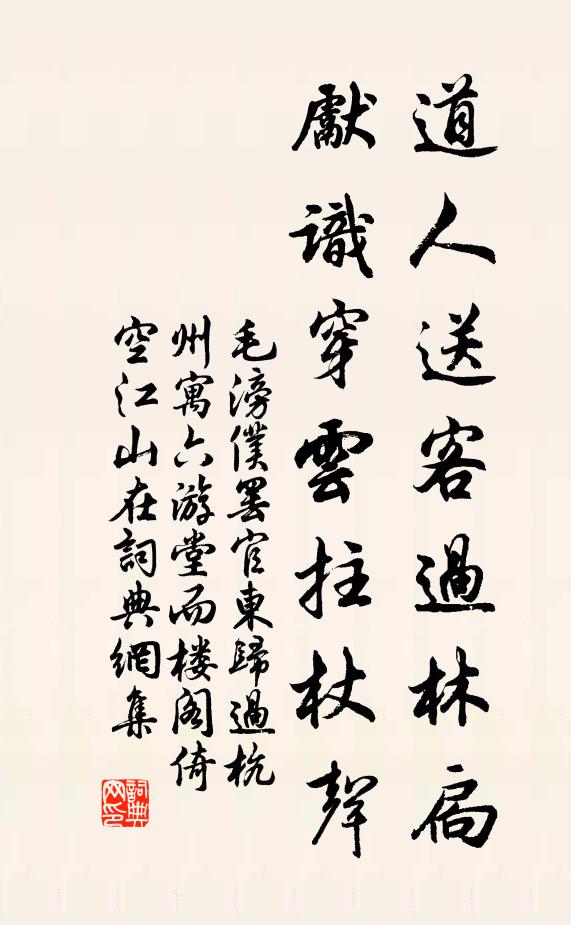 道人送客過林扃
獻識穿雲拄杖聲
毛滂僕罷官東歸過杭
州寓六游堂而楼阁倚
空江山在詞典網集
詞典网印